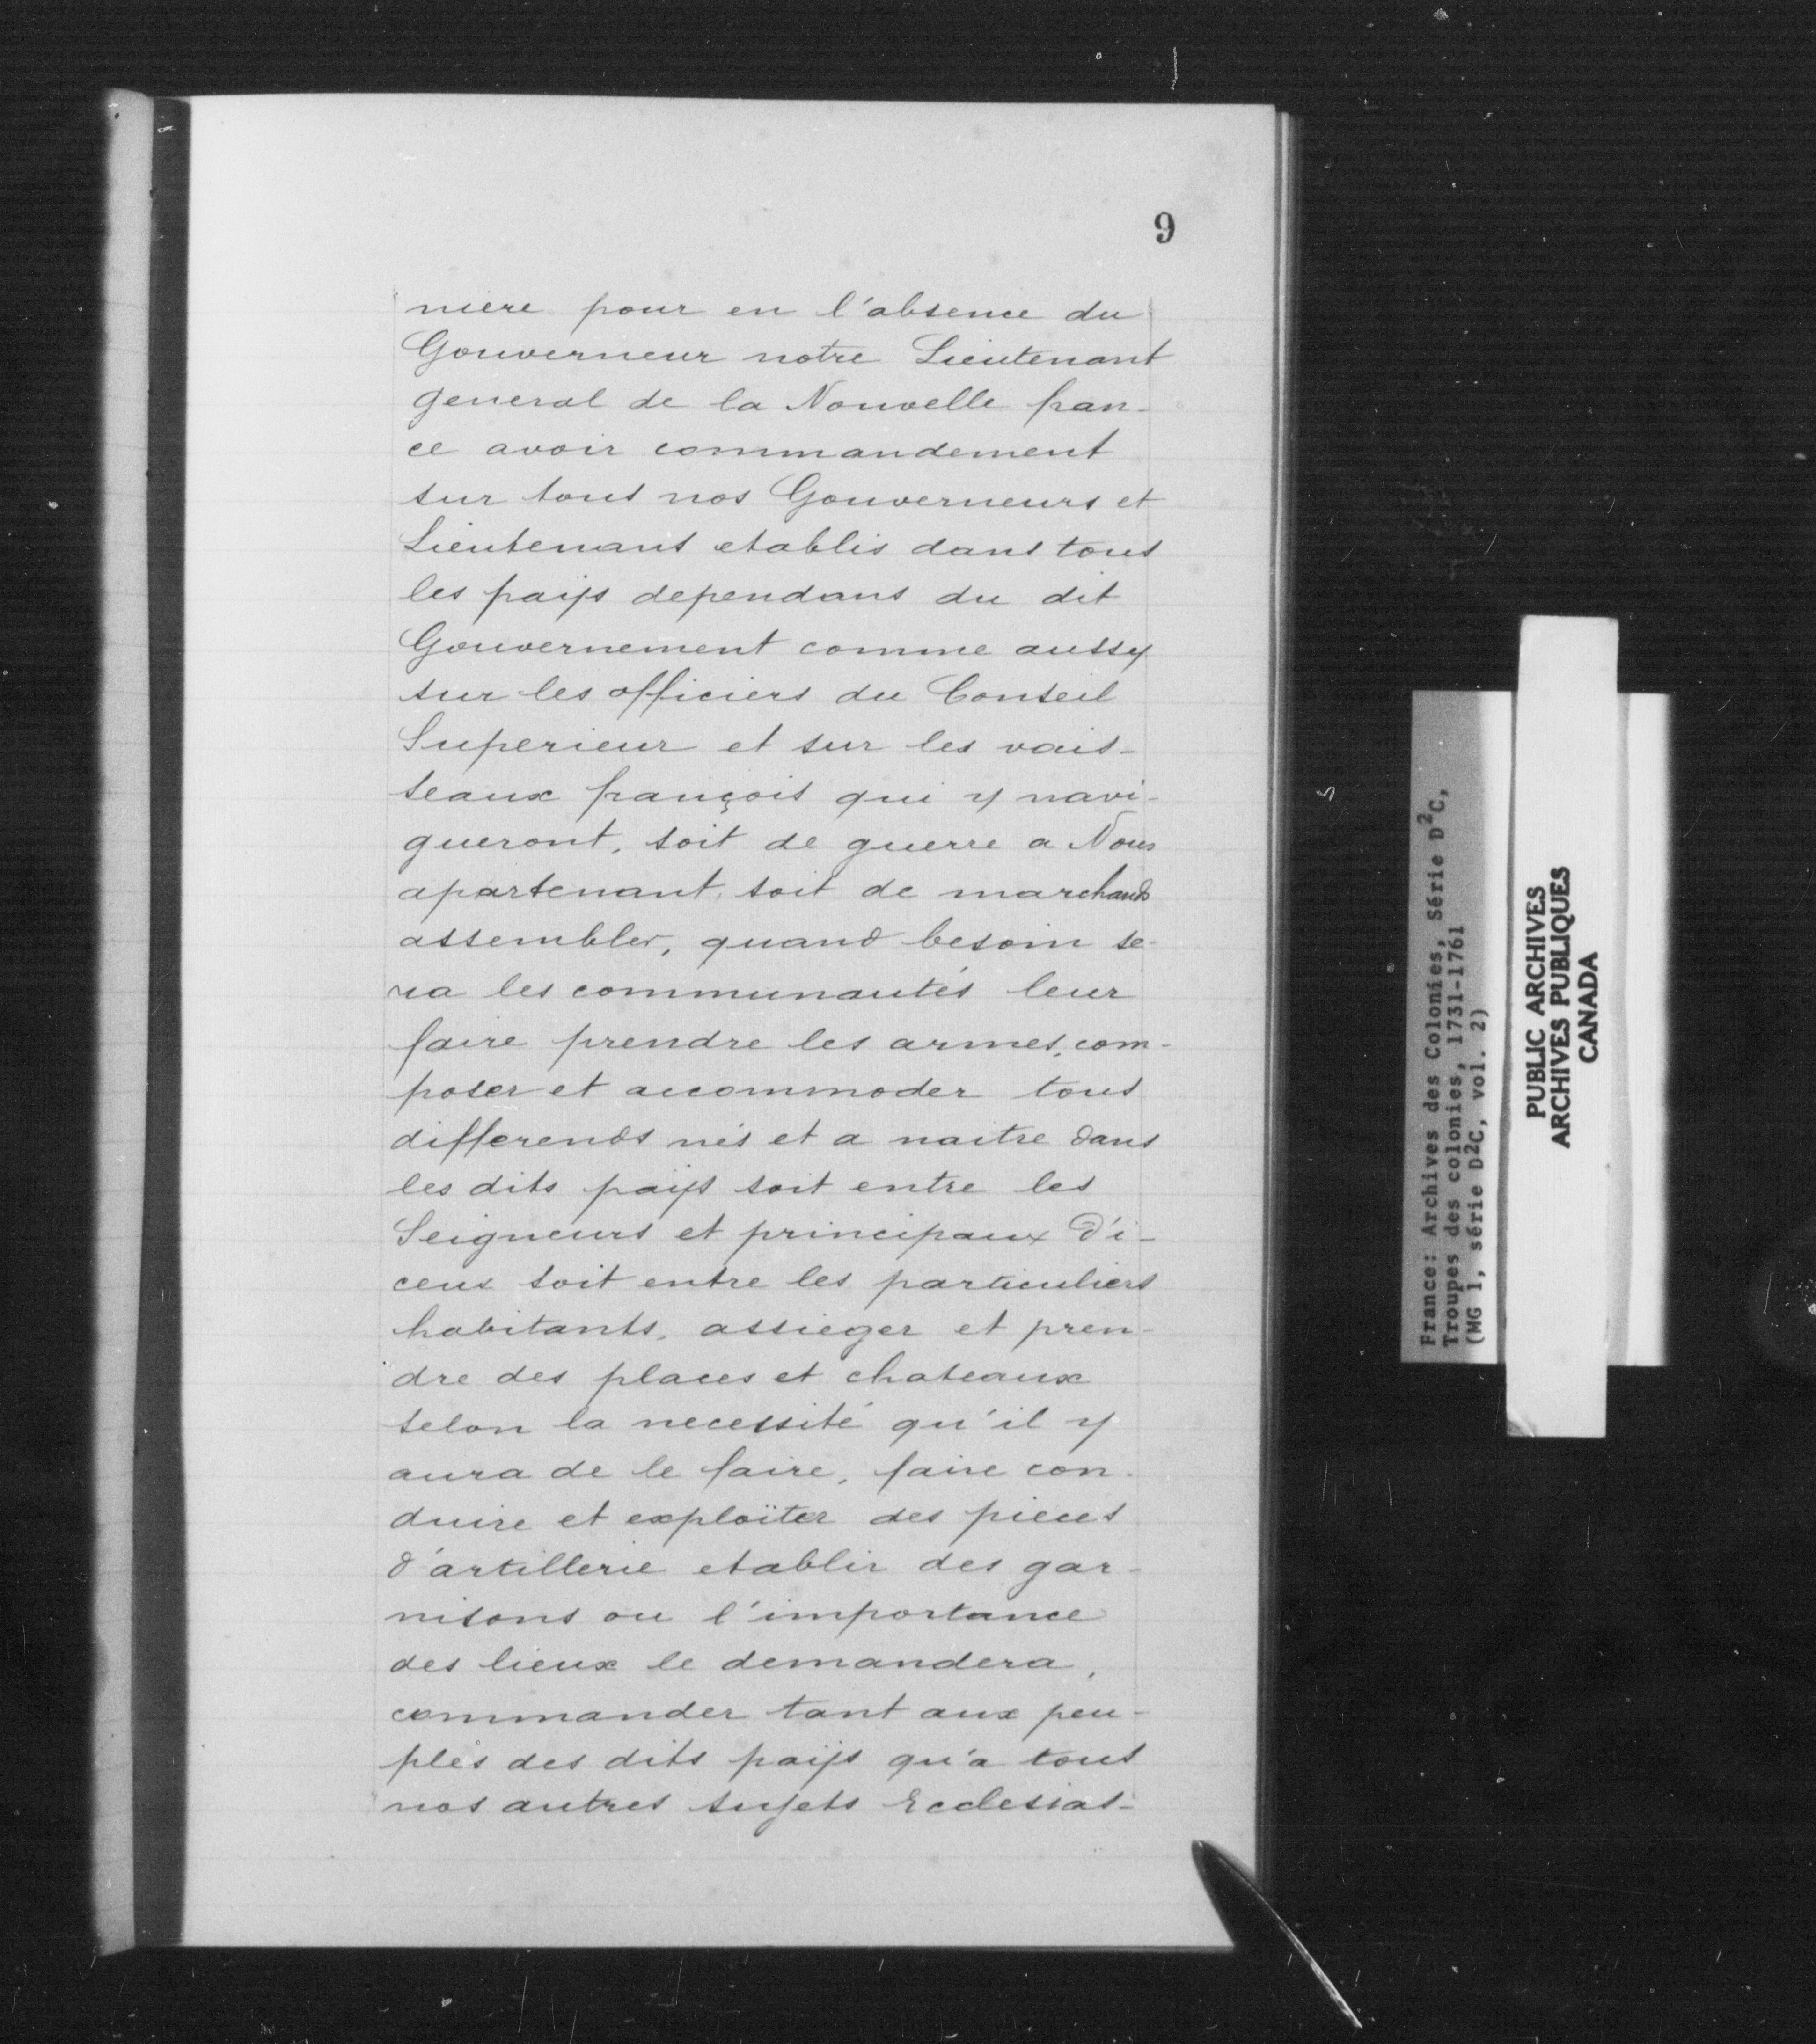 9
niere pour en l'absence du
Gouverneur notre Lieutenant
general de la Nouvelle fran-
ce avoir commandement
sur tous nos Gouverneurs et
Lieutenans etablis dans tous
les païs dependans du dit
Gouvernement comme aussy
sur les officiers du Conseil
Superieur et sur les vais-
seaux françois qui y navi-
gueront, soit de guerre a Nous
apartenant, soit de marchands
assembler, quand besoin se-
ra les communautés leur
faire prendre les armes, com-
poser et accommoder tous
differends nés et a naitre dans
les dits païs soit entre les
Seigneurs et principaux d'i-
ceux soit entre les particuliers
habitants, assieger et pren-
dre des places et chateaux
selon la necessité qu'il y
aura de le faire, faire con-
duire et exploïter des pieces
d'artillerie etablir des gar-
nisons ou l'importance
des lieux le demandera,
commander tant aux peu-
ples des dits païs qu'a tous
nos autres sujets Ecclesias-
France: Archives des Colonies, Série D²C,
Troupes des colonies, 1731-1761
(MG 1, série D²C, vol. 2)
PUBLIC ARCHIVES
ARCHIVES PUBLIQUES
CANADA